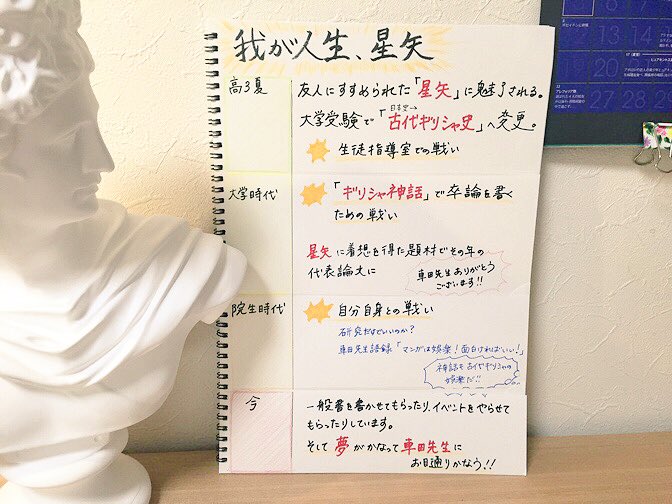 我が人生、星矢
高3夏
友人にすすめられた「星矢」に魅了される。
日本史→
大学受験で「古代ギリシャ史」へ変更。
生徒指導室での戦い
大学時代
「ギリシャ神話」で卒論を書く
ための戦い
星矢に着想を得た題材でその年の
代表論文に
車田先生ありがとう
ございます!!
院生時代
自分自身との戦い
研究だけでいいのか?
車田先生語録「マンガは娯楽!面白ければいい!」
神話も古代ギリシャの
娯楽だ!!
今
一般書を書かせてもらったり、イベントをやらせて
もらったりしています。
そして夢がかなって車田先生に
お目通りかなう!!
13 14
20 21
27 28 29